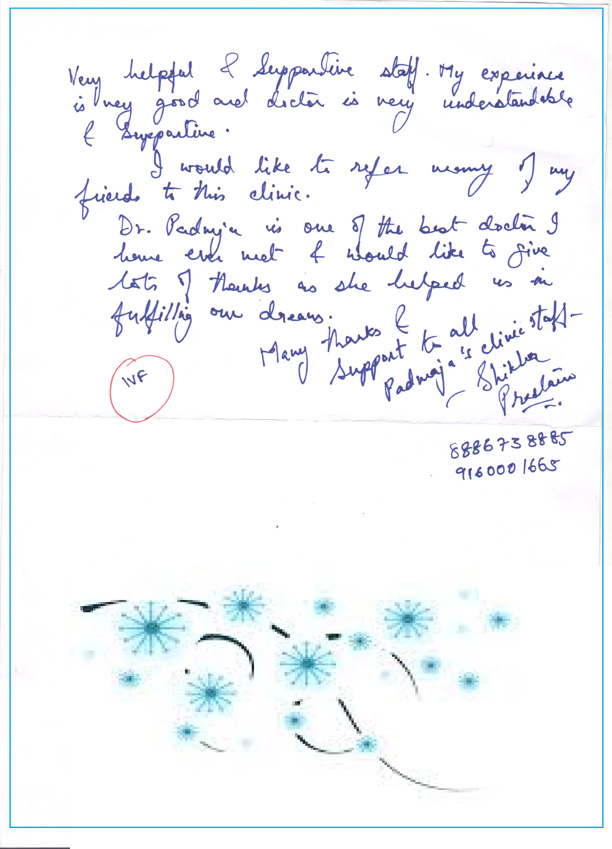 Very helpful & Supportive staff. My experience
is very good and doctor is very understandable
& Supportive.
I would like to refer many of my
friends to this clinic.
Dr. Padmaja is one of the best doctor I
have ever met & would like to give
lots of thanks as she helped us in
fulfilling our dreams.
Many thanks &
Support to all
Padmaja's clinic staff-
- Shikha
IVF
8886738885
9160001665